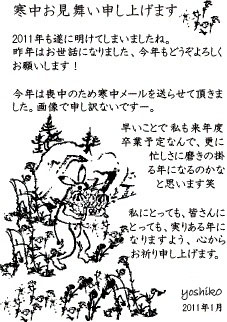 寒中お見舞い申し上げます
2011年も遂に明けてしまいましたね。
昨年はお世話になりました、今年もどうぞよろしく
お願いします！
今年は喪中のため寒中メールを送らせて頂きま
した。画像で申し訳ないですー。
早いことで私も来年度
卒業予定なんで、更に
忙しさに磨きの掛
る年になるのかな
と思います笑
私にとっても、皆さんに
とっても、実りある年に
なりますよう、心から
お祈り申し上げます。
yoshiko
2011年1月